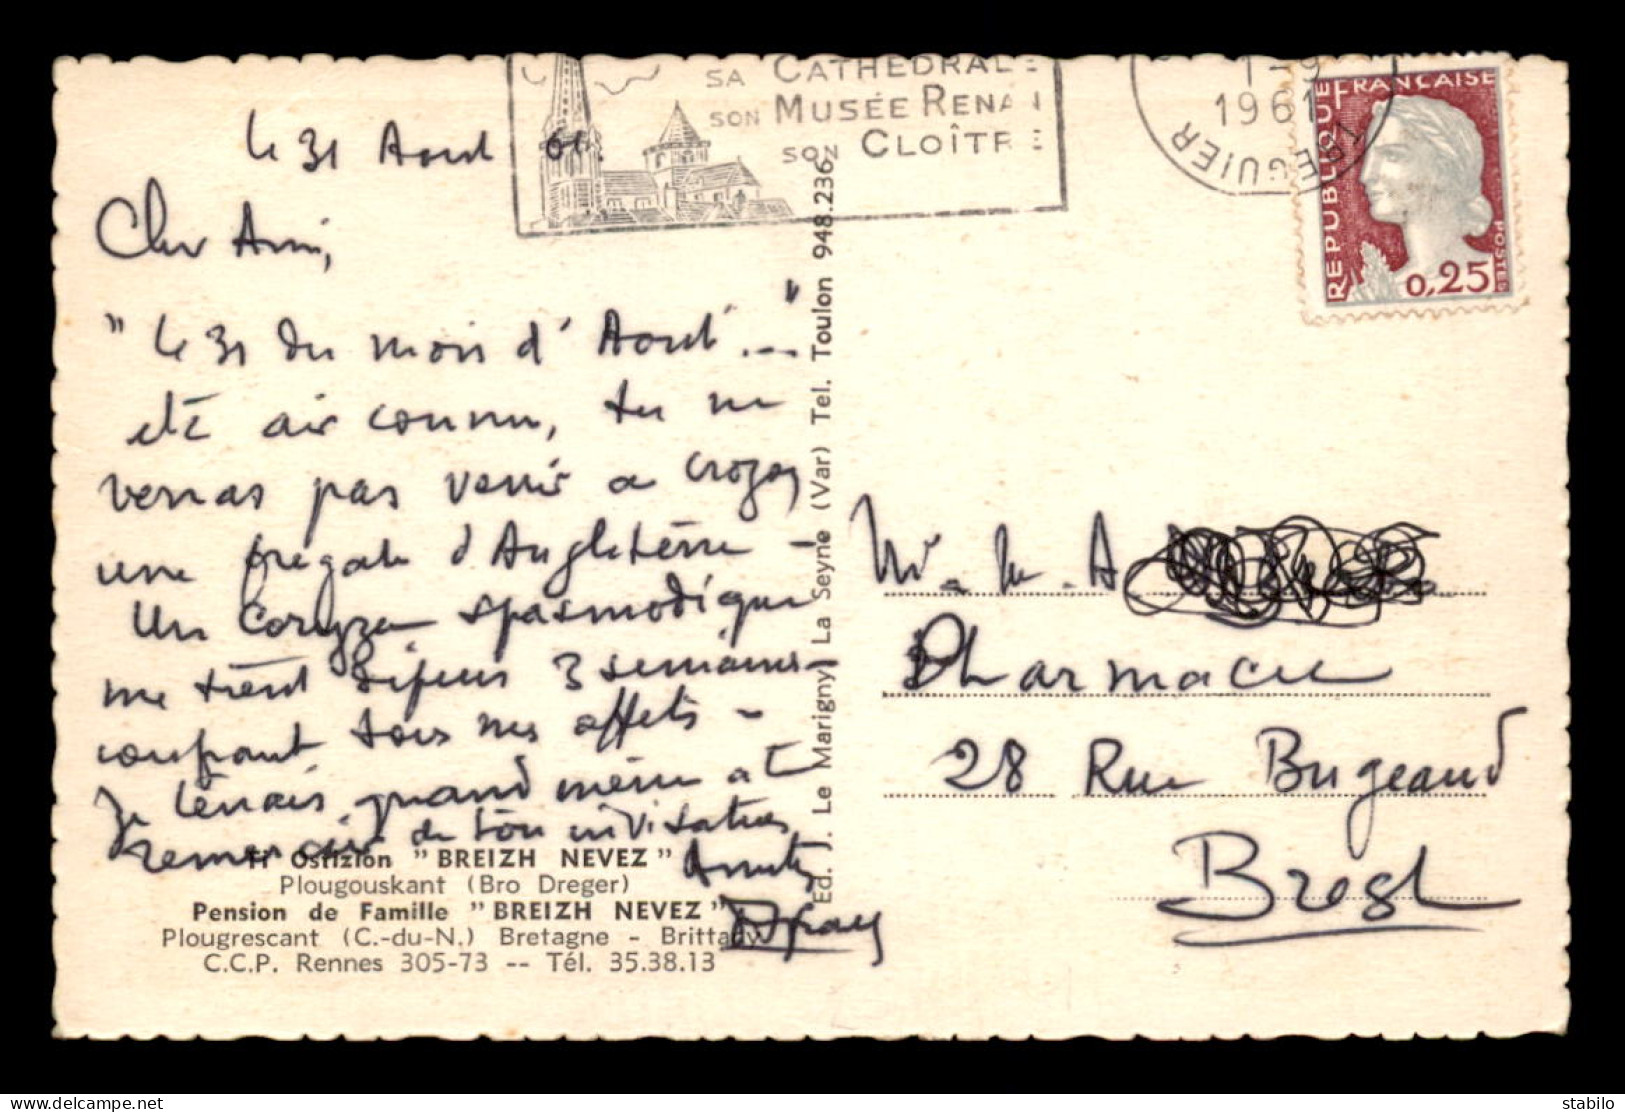 SA CATHÉDRALE
SON MUSÉE RENAN
SON CLOÎTRE
1-9
1961
TREGUIER
REPUBLIQUE FRANÇAISE
POSTES
0,25
le 31 Aout 61.
Cher Ami,
"le 31 du mois d'Aout..."
air connu, tu ne
verras pas venir a
une fregate d'Angleterre -
Un Coryza spasmodique
me tient depuis 3 semaines
coupant tous mes effets -
Je tenais quand même à te
remercier de ton invitation
Amitiés
Ti Ostizion "BREIZH NEVEZ"
Plougouskant (Bro Dreger)
Pension de Famille "BREIZH NEVEZ"
Plougrescant (C.-du-N.) Bretagne - Brittany
C.C.P. Rennes 305-73 -- Tél. 35.38.13
Ed. J. Le Marigny La Seyne (Var) Tel. Toulon 948.236
A
Pharmacie
28 Rue Bugeaud
Brest
stabilo